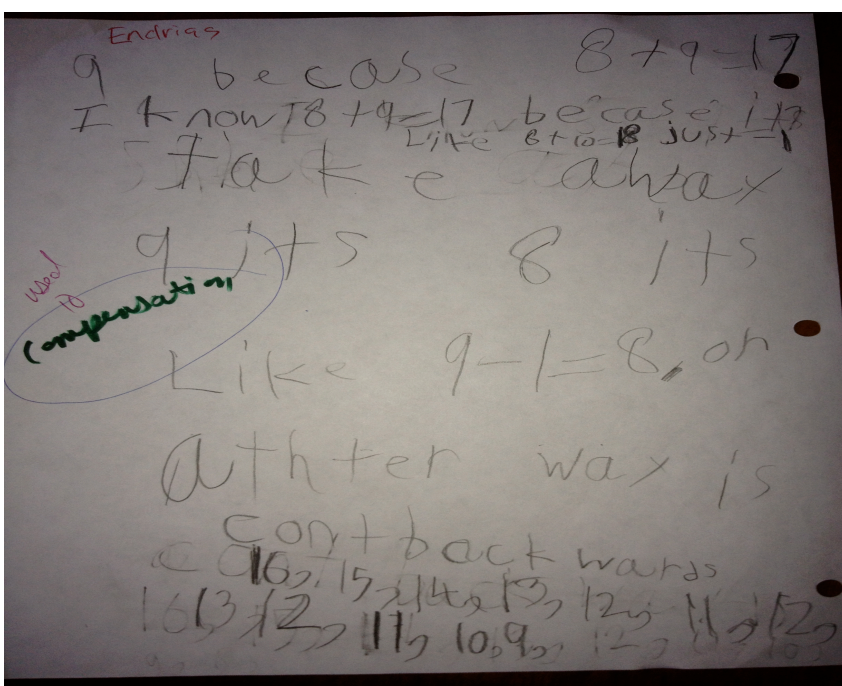 Endrias
9 becase 8+9=17
I know 8+9=17 becase it's
Like 8+10=18 just -1
take away
9 its 8 its
used
to
compensation
Like 9-1=8, or
athter way is
cont back wards
16, 15, 14, 13, 12, 11, 12,
13, 12, 11, 10, 9,